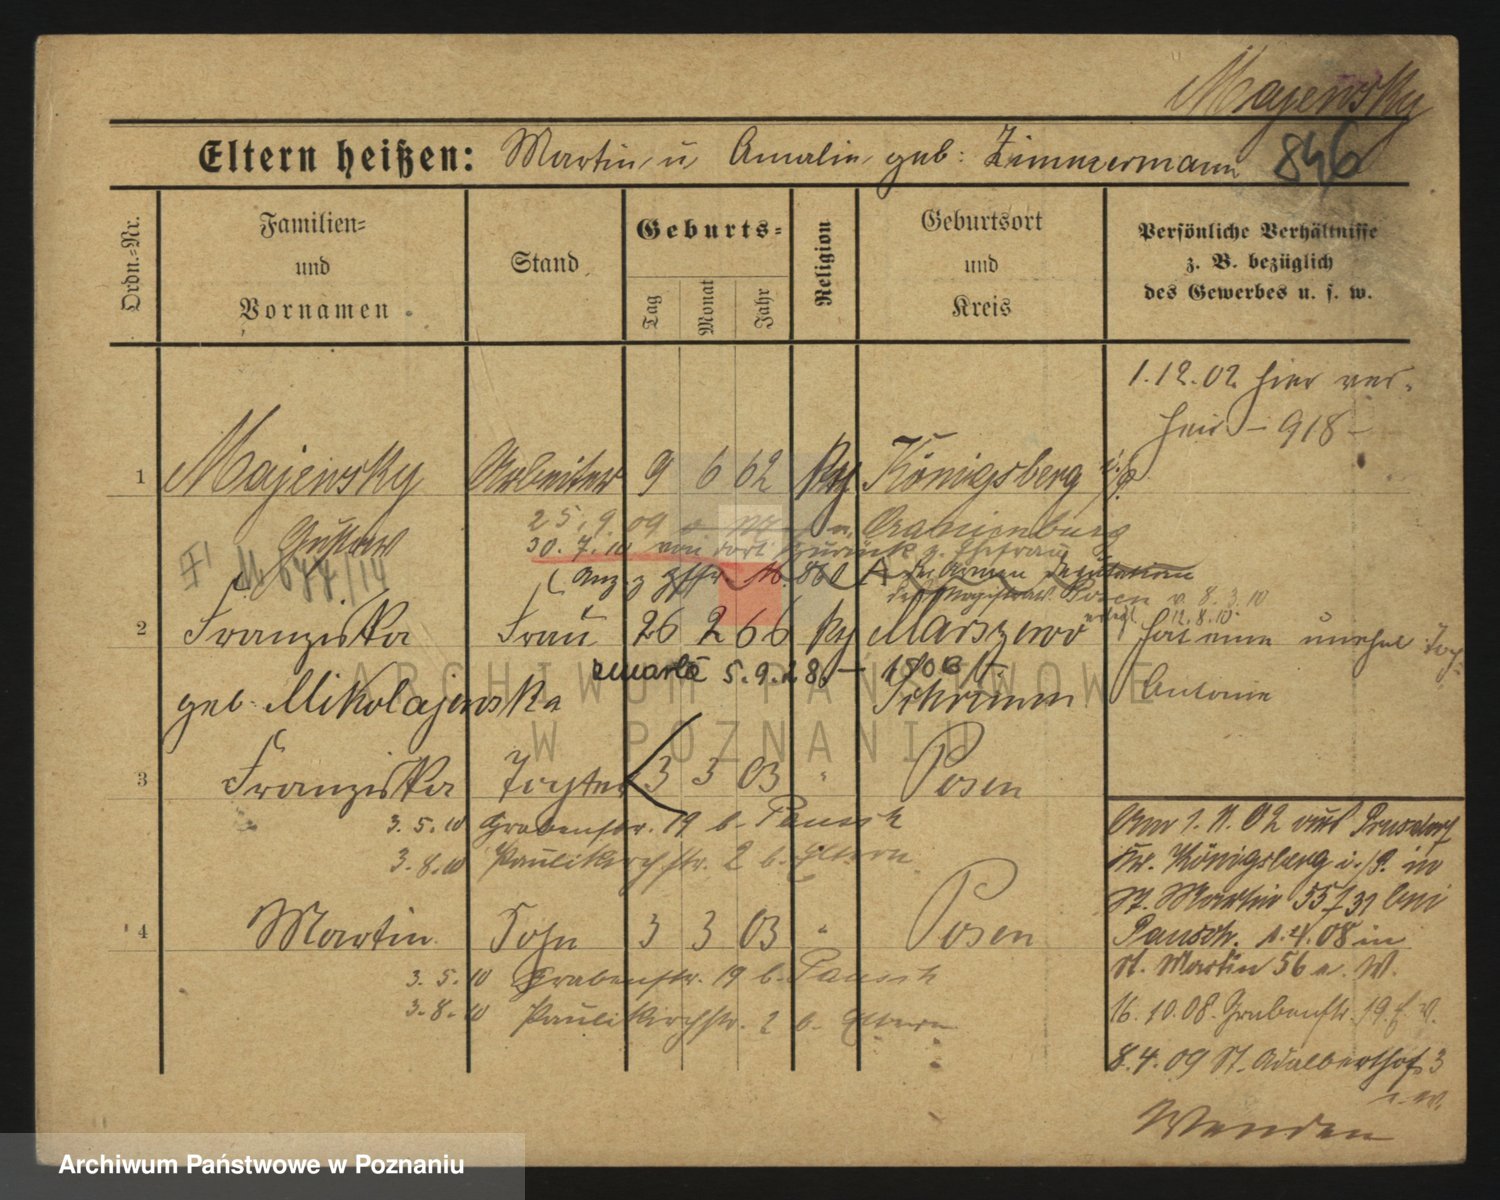 Majewsky
846
Eltern heißen: Martin u Amalie geb: Zimmermann
Ordn.=Nr.
Familien=
und
Vornamen
Stand
Geburts=
Tag
Monat
Jahr
Religion
Geburtsort
und
Kreis
Persönliche Verhältnisse
z. B. bezüglich
des Gewerbes u. s. w.
1.12.02 hier ver-
heir – 918 –
1 Majewsky Arbeiter 9 6 62 Königsberg
Gustav
25.9.09 n. Oranienburg
30.7.10 von dort zurück z. Ehefrau
der Armen Deputation
Posen v. 8.3.10
12.8.10
2 Franziska Frau 26 2 66 hat eine unehel.
zmarła 5.9.28. – 1806
geb. Mikolajewska Schrimm Antonie
3 Franziska Tochter 3 3 03 " Posen
3.5.10 Grabenstr. 19 b. Pausch
3.8.10 Paulikirchstr. 2 b. Eltern
4 Martin Sohn 3 3 03 " Posen
3.5.10 Grabenstr. 19 b. Pausch
3.8.10 Paulikirchstr. 2 b. Eltern
Am 1.11.02 aus
Kr. Königsberg i./P. in
St. Martin 55 bei
Pausch. 1.4.08 in
St. Martin 56 a. W.
16.10.08. Grabenstr. 19
8.4.09 St. Adalberthof 3
Wenden
ARCHIWUM PAŃSTWOWE
W POZNANIU
Archiwum Państwowe w Poznaniu